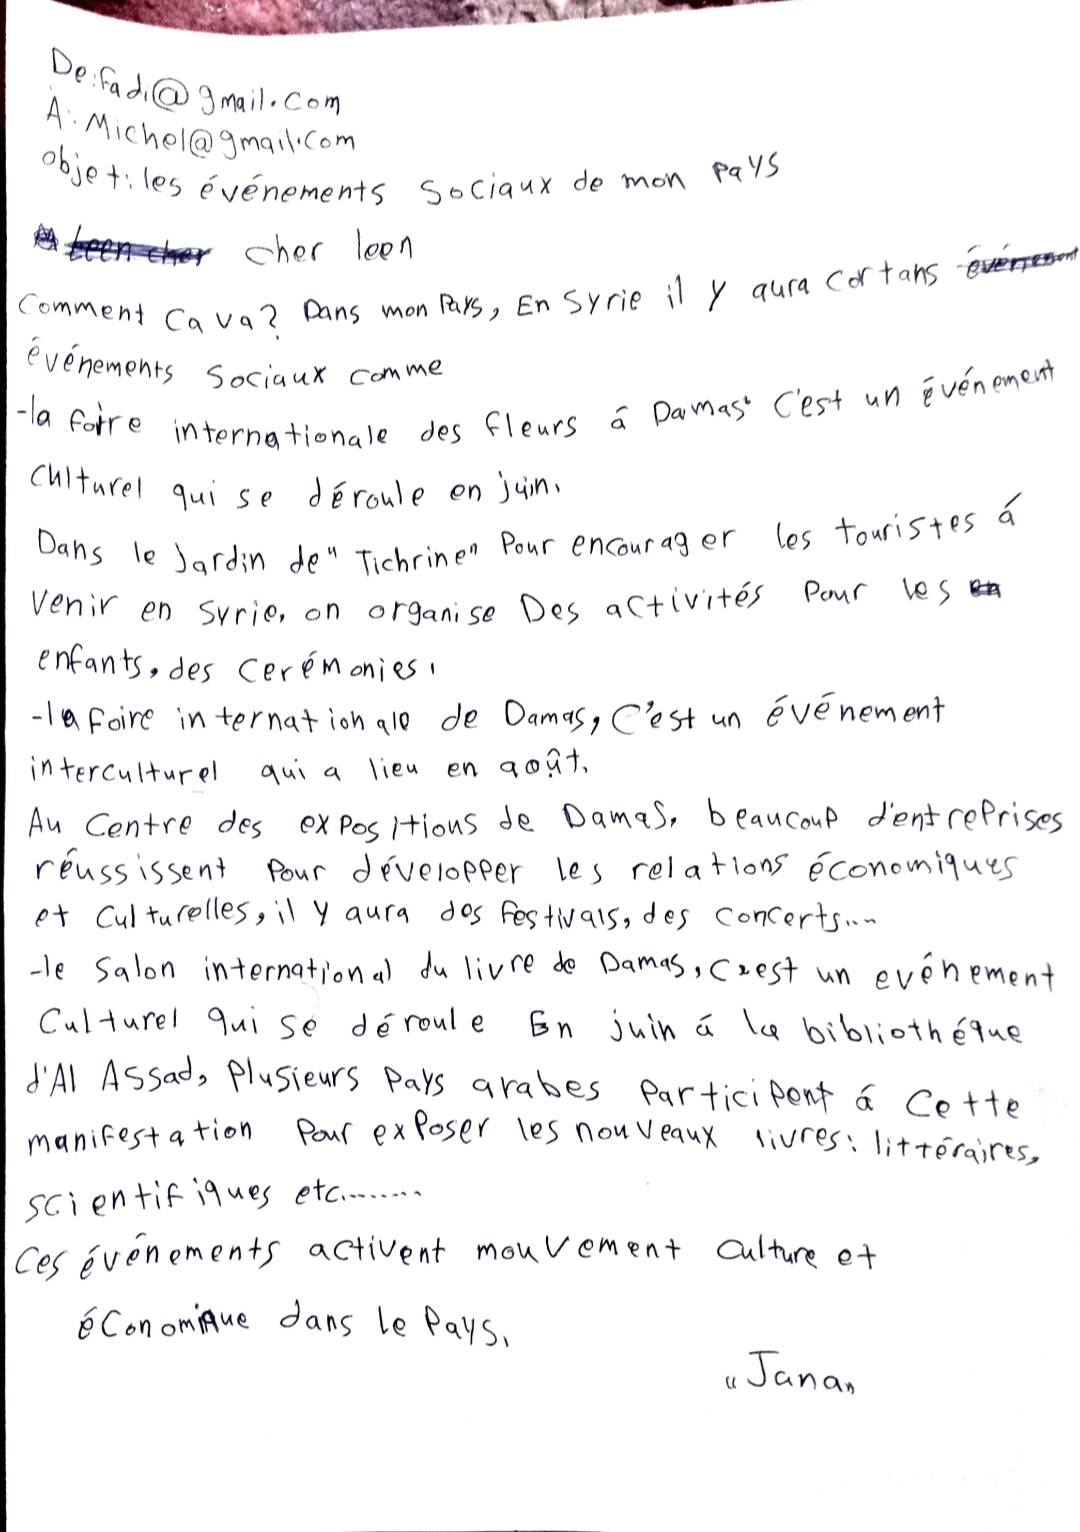 De: fadi@gmail.com
À: Michel@gmail.com
objet: les événements Sociaux de mon pays
cher leen
Comment Ca va? Dans mon Pays, En Syrie il y aura certans
événements Sociaux comme
-la foire internationale des fleurs á Damas. C'est un événement
Culturel qui se déroule en juin.
Dans le Jardin de "Tichrine" Pour encourager les touristes á
Venir en Syrie, on organise Des activités Pour les
enfants, des Cerémonies.
-la foire internationale de Damas, C'est un événement
interculturel qui a lieu en août.
Au Centre des expositions de Damas, beaucoup d'entreprises
réussissent Pour développer les relations économiques
et Culturelles, il y aura des festivals, des concerts...
-le Salon international du livre de Damas, C'est un evénement
Culturel qui se déroule En juin á la bibliothéque
d'Al Assad, Plusieurs Pays arabes Participent á Cette
manifestation Pour exposer les nouveaux livres: littéraires,
scientifiques etc........
Ces événements activent mouvement Culture et
éConomique dans le Pays.
"Jana"